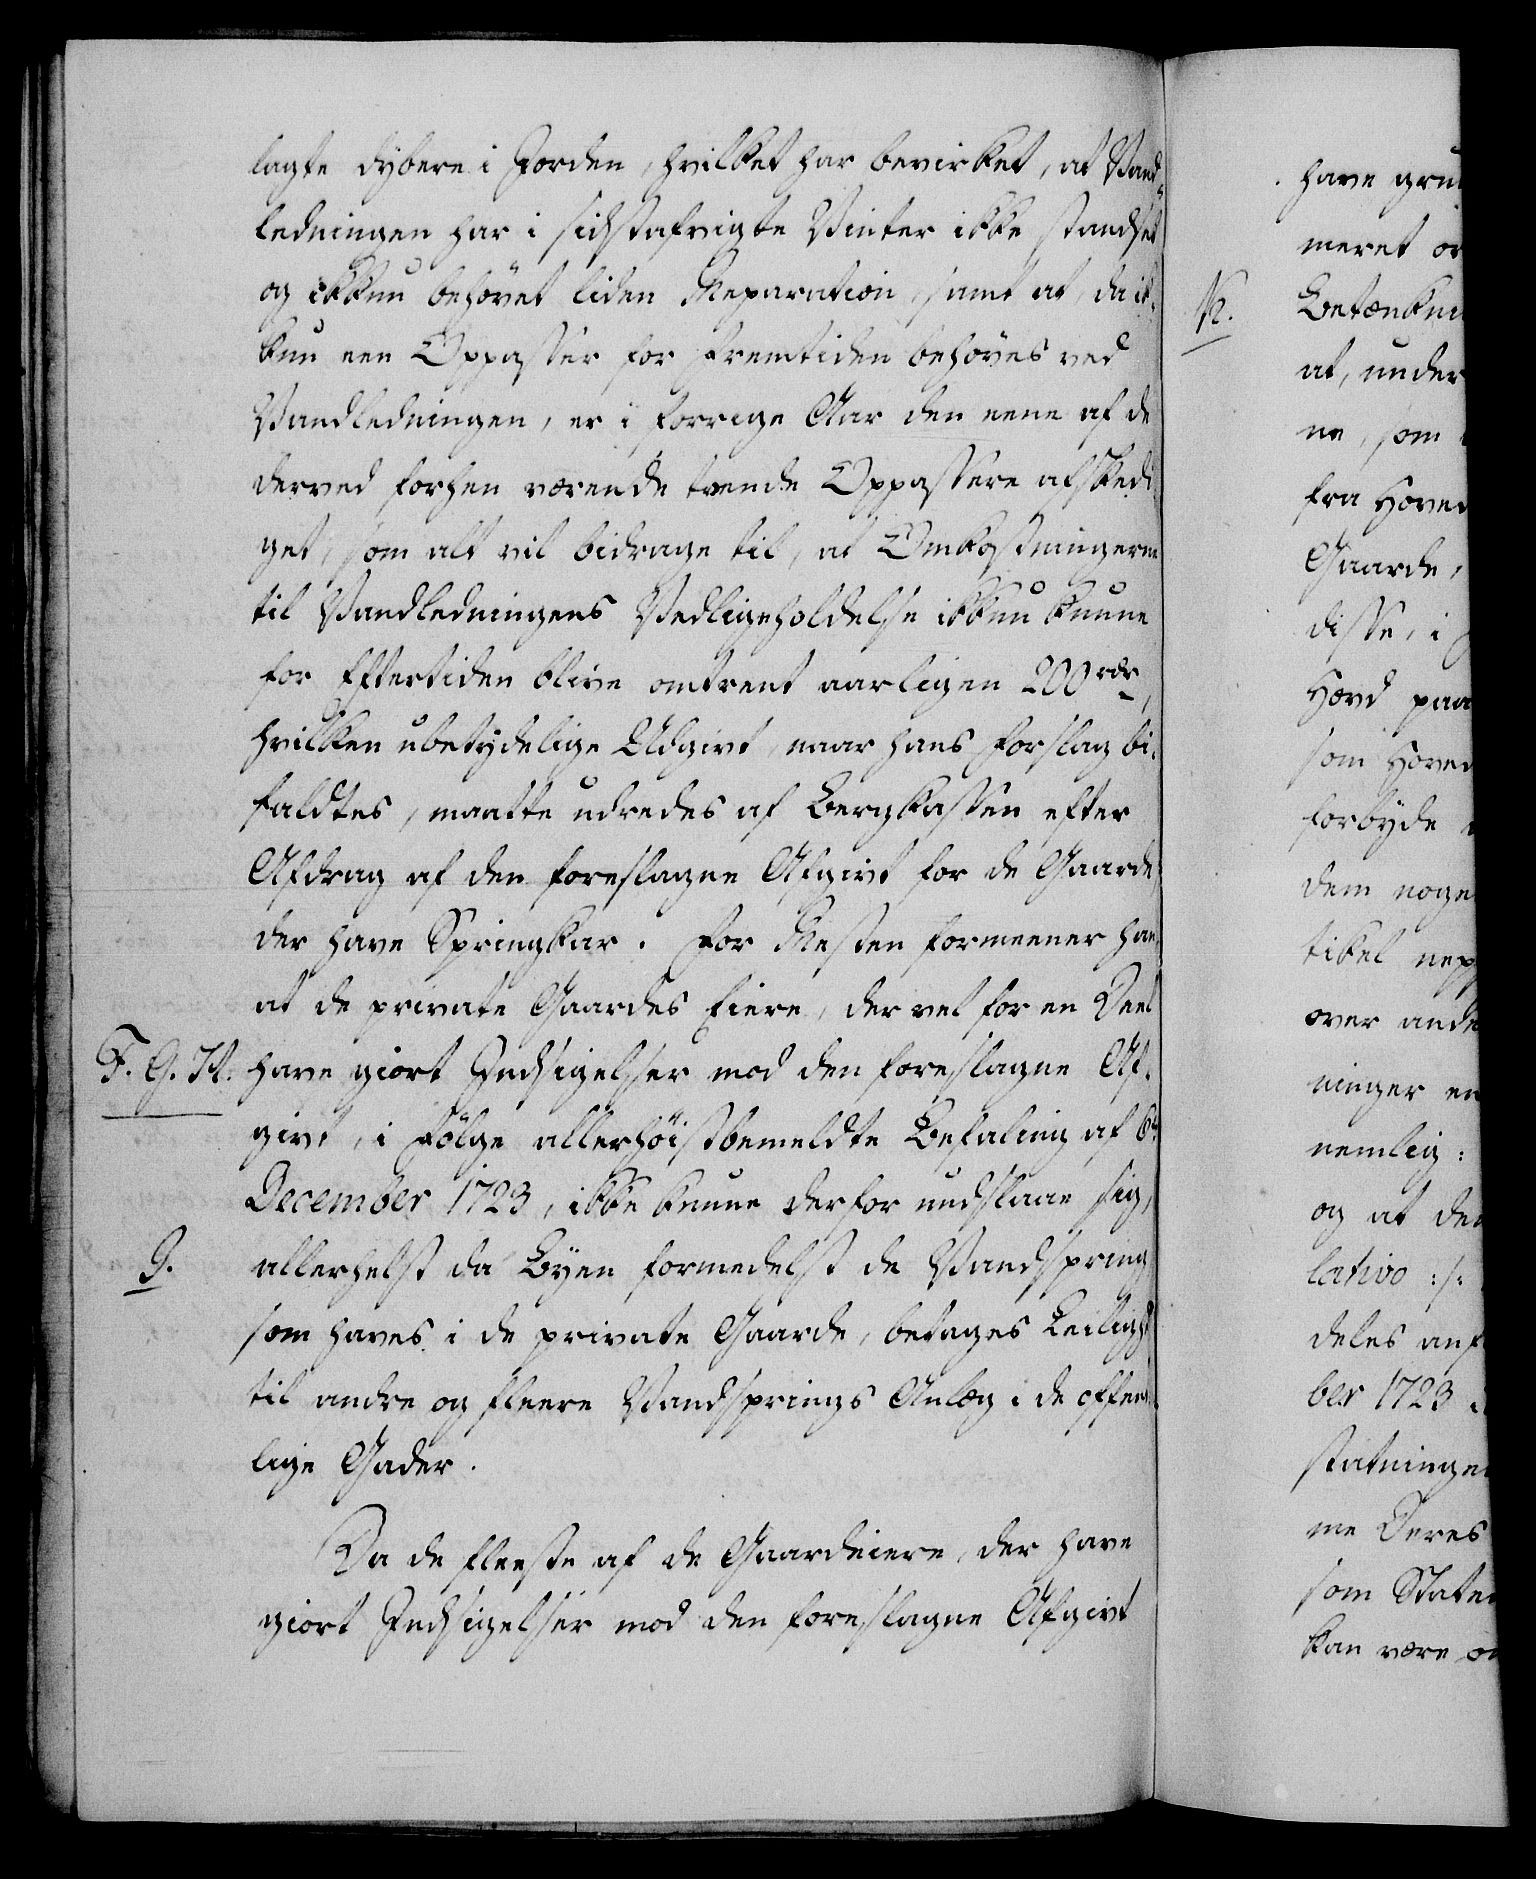 lagte dybere i Jorden, hvilket har bevirket, at Vand-
ledningen har i sidstafvigte Vinter ikke standset
og ikkun behövet liden Reparation, samt at, da ik-
kun een Oppasser for Fremtiden behöves ved
Vandledningen, er i forrige Aar den eene af de
derved forhen værende tvende Oppassere afskedi
get, som alt vil bidrage til, at Omkostningerne
til Vandledningens Vedligeholdelse ikkun kunne
for Eftertiden blive omtrent aarligen 200 rdr,
hvilken ubetydelige Udgivt, naar hans Forslag bi-
faldtes, maatte udredes af Bergkassen efter
Afdrag af den foreslagne Afgivt for de Gaarde,
der have Springkar. For Resten formeener han
at de private Gaardes Eiere, der vel for en Deel
F. G. H. have giort Indsigelser mod den foreslagne Af-
givt, i Fölge allerhöistbemeldte Befaling af 6te
December 1723, ikke kunne derfor undslaae sig,
J. allerhelst da Byen formedelst de Vandspring
som haves i de private Gaarde, betages Leilighd
til andre og fleere Vandsprings Anlæg i de offent
lige Gader.
Da de fleeste af de Gaardeiere, der have
giort Indsigelser mod den foreslagne Afgivt
have gru
meret
K. Betænkni
at, under
ne, som
fra Hoved
Gaarde,
disse, i
Hævd paa
som Hoved
forbyde
dem noge
tikel nep
over ande
ninger en
nemlig:
og at den
lativo :/:
deles anf
ber 1723
statninge
me Deres
som Staten
kan være